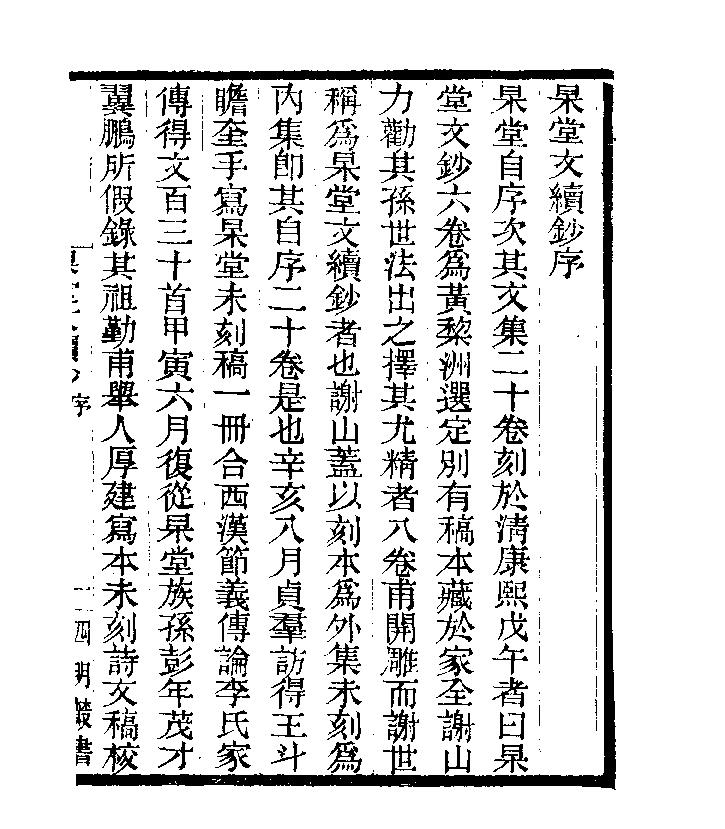 杲堂文續鈔序
杲堂自序次其文集二十卷刻於清康熙戊午者曰杲
堂文鈔六卷爲黃棃洲選定別有稿本藏於家全謝山
力勸其孫世法出之擇其尤精者八卷甫開雕而謝世
稱爲杲堂文續鈔者也謝山蓋以刻本爲外集未刻爲
內集卽其自序二十卷是也辛亥八月貞羣訪得王斗
瞻奎手寫杲堂未刻稿一冊合西漢節義傳論李氏家
傳得文百三十首甲寅六月復從杲堂族孫彭年茂才
翼鵬所假錄其祖勤甫舉人厚建寫本未刻詩文稿校
序
一
四明叢書